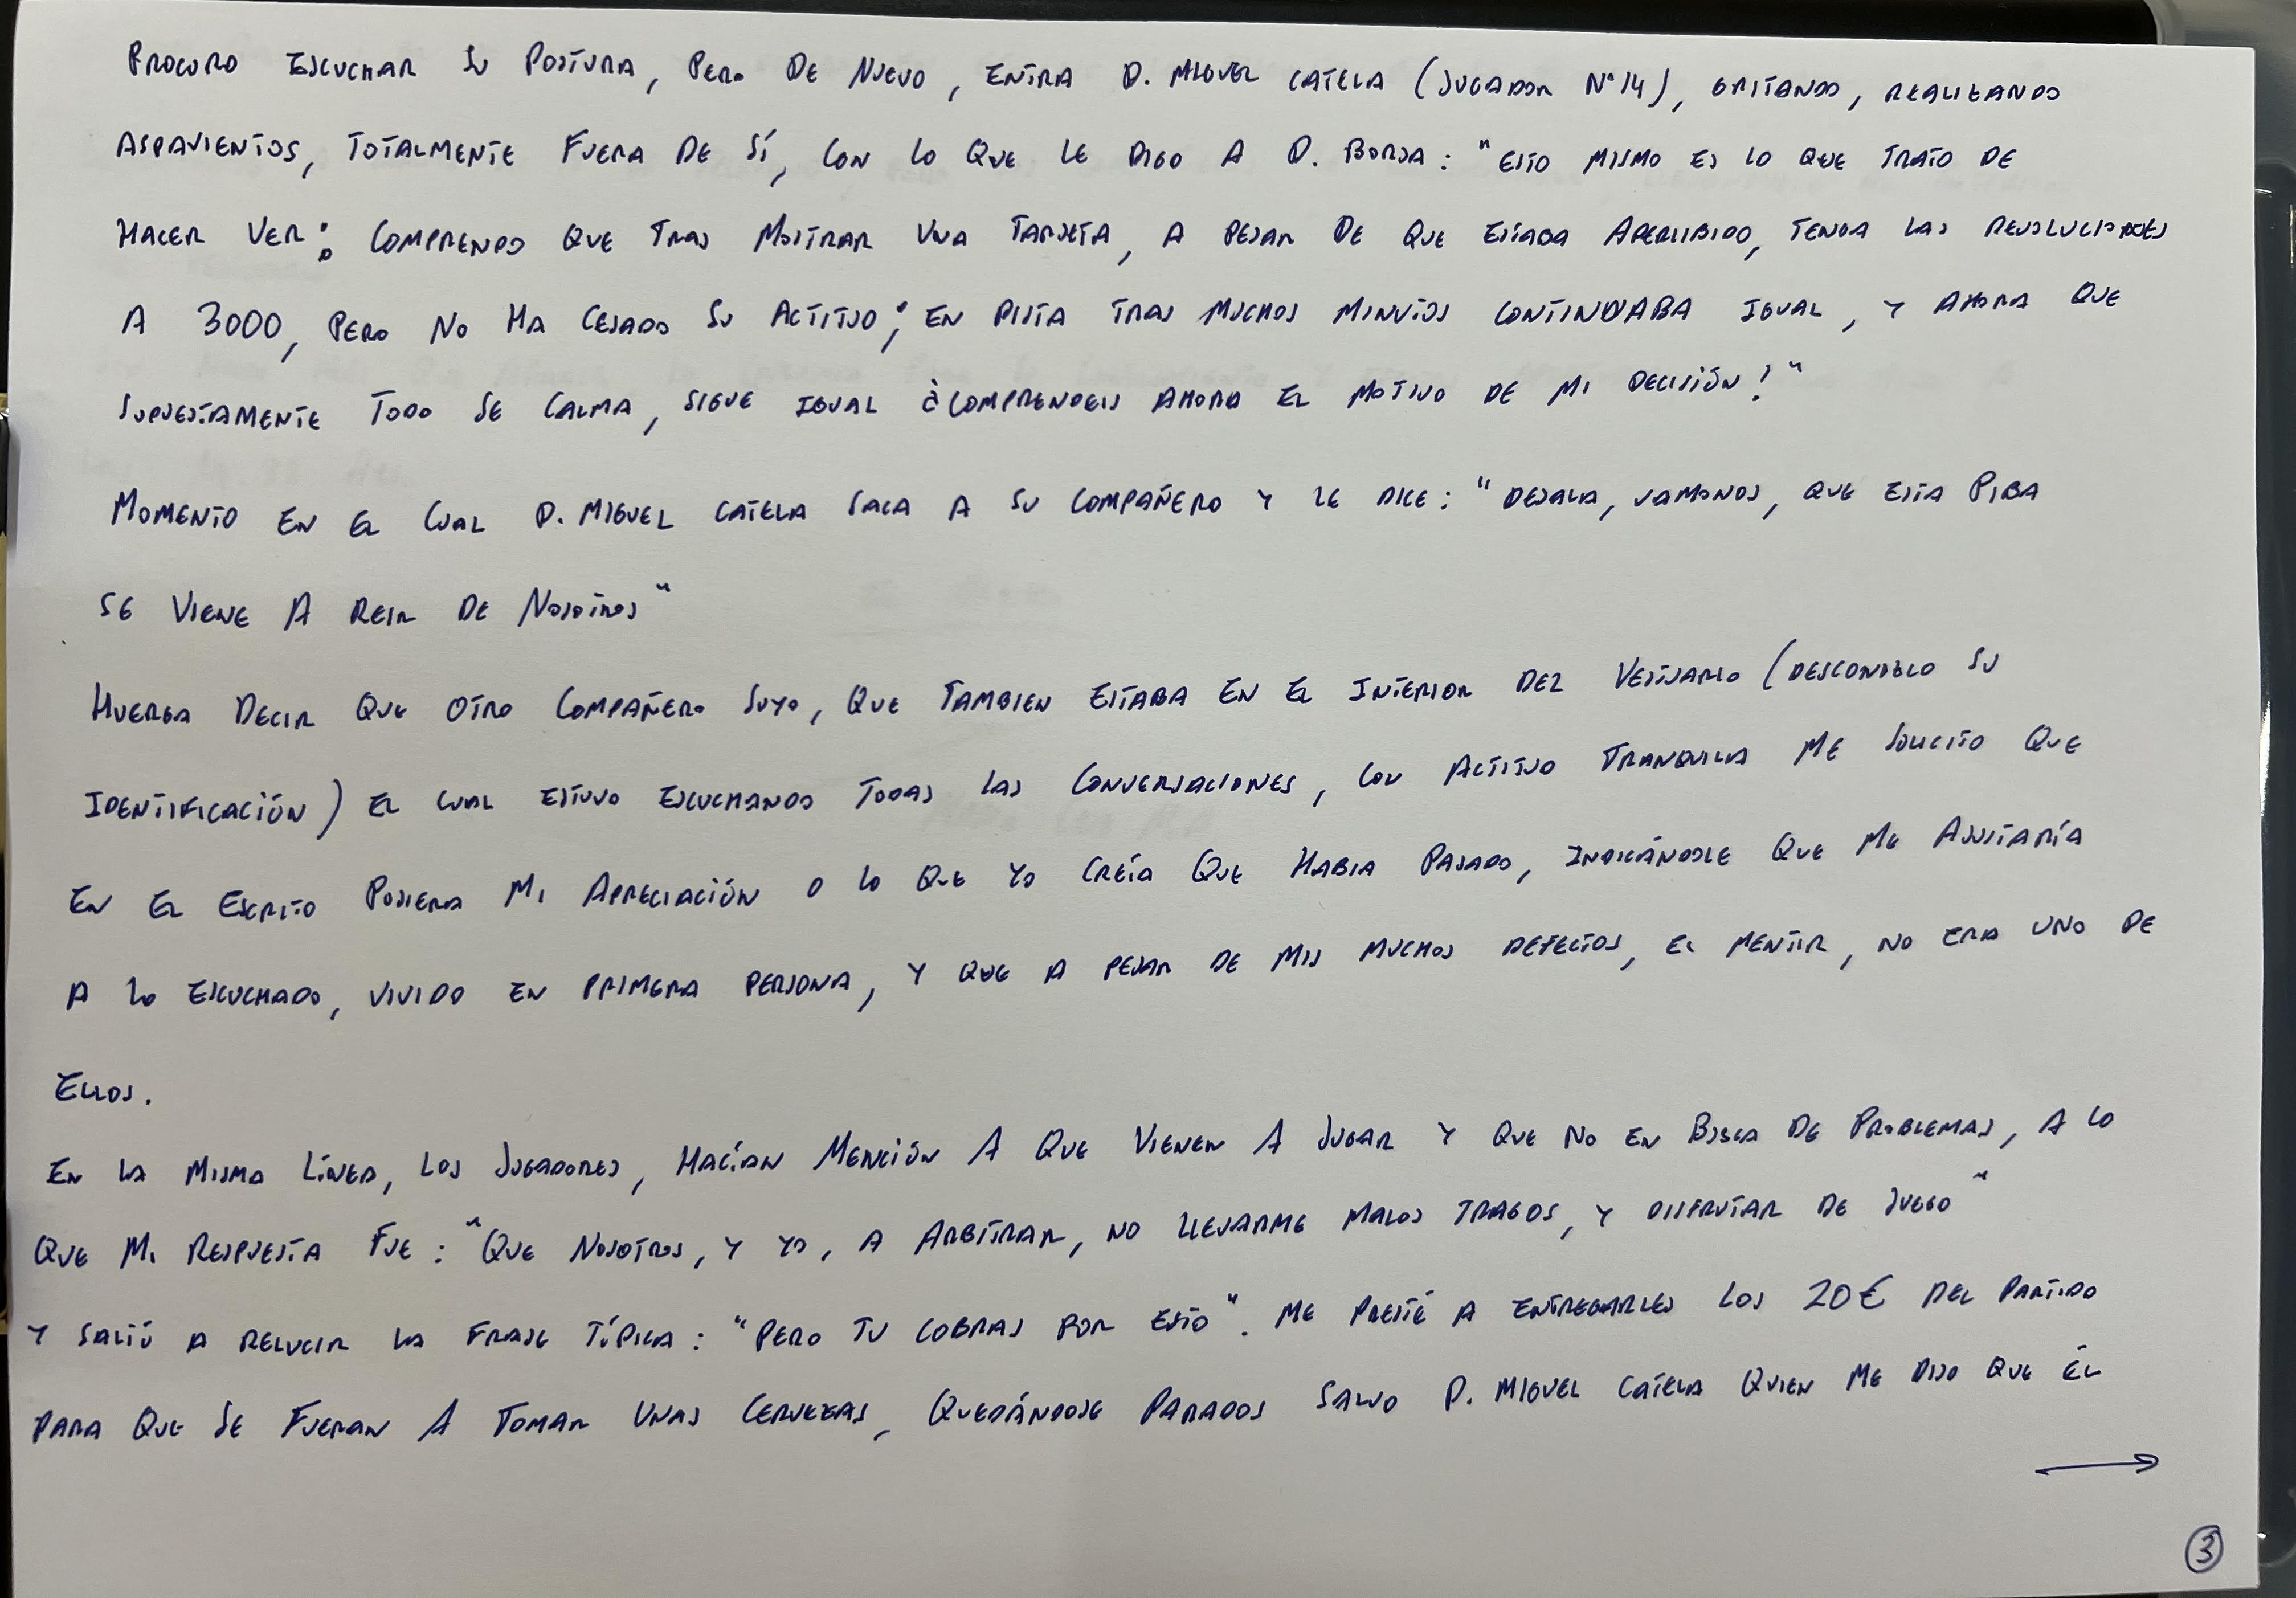 PROCURO ESCUCHAR SU POSTURA, PERO DE NUEVO, ENTRA D. MIGUEL CATELA (JUGADOR Nº14), GRITANDO, REALIZANDO
ASPAVIENTOS, TOTALMENTE FUERA DE SÍ, CON LO QUE LE DIGO A D. BORJA: "ESTO MISMO ES LO QUE TRATO DE
HACER VER: COMPRENDO QUE TRAS MOSTRAR UNA TARJETA, A PESAR DE QUE ESTABA APERCIBIDO, TENGA LAS REVOLUCIONES
A 3000, PERO NO HA CESADO SU ACTITUD; EN PISTA TRAS MUCHOS MINUTOS CONTINUABA IGUAL, Y AHORA QUE
SUPUESTAMENTE TODO SE CALMA, SIGUE IGUAL ¿COMPRENDEIS AHORA EL MOTIVO DE MI DECISIÓN?"
MOMENTO EN EL CUAL D. MIGUEL CATELA SACA A SU COMPAÑERO Y LE DICE: "DEJALA, VAMONOS, QUE ESTA PIBA
SE VIENE A REIR DE NOSOTROS"
HUERGA DECIR QUE OTRO COMPAÑERO SUYO, QUE TAMBIEN ESTABA EN EL INTERIOR DEL VESTUARIO (DESCONOZCO SU
IDENTIFICACIÓN) EL CUAL ESTUVO ESCUCHANDO TODAS LAS CONVERSACIONES, CON ACTITUD TRANQUILA ME SOLICITO QUE
EN EL ESCRITO PUSIERA MI APRECIACIÓN O LO QUE YO CREÍA QUE HABIA PASADO, INDICÁNDOLE QUE ME AJUSTARÍA
A LO ESCUCHADO, VIVIDO EN PRIMERA PERSONA, Y QUE A PESAR DE MIS MUCHOS DEFECTOS, EL MENTIR, NO ERA UNO DE
ELLOS.
EN LA MISMA LÍNEA, LOS JUGADORES, HACÍAN MENCIÓN A QUE VIENEN A JUGAR Y QUE NO EN BUSCA DE PROBLEMAS, A LO
QUE MI RESPUESTA FUE: "QUE NOSOTROS, Y YO, A ARBITRAR, NO LLEVARME MALOS TRAGOS, Y DISFRUTAR DE JUEGO"
Y SALIÓ A RELUCIR LA FRASE TÍPICA: "PERO TU COBRAS POR ESTO". ME PRESTÉ A ENTREGARLES LOS 20€ DEL PARTIDO
PARA QUE SE FUERAN A TOMAR UNAS CERVEZAS, QUEDÁNDOSE PARADOS SALVO D. MIGUEL CATELA QUIEN ME DIJO QUE ÉL
→
3